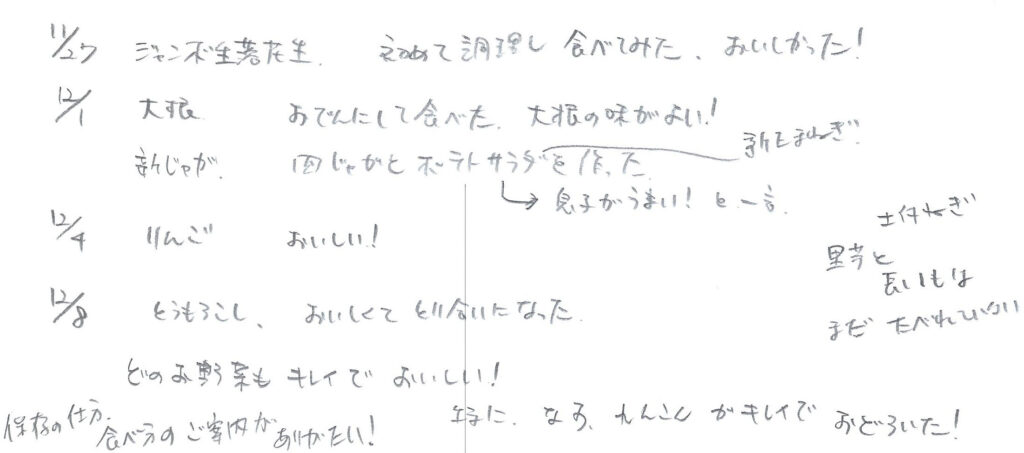 11/27 ジャンボ生落花生. 初めて調理し 食べてみた、おいしかった!
12/1 大根 おでんにして食べた. 大根の味がよい!
新玉ねぎ.
新じゃが. 肉じゃがと ポテトサラダを作った.
→ 息子がうまい! と一言.
12/4 りんご おいしい!
土付ねぎ
里芋と
長いもは
まだ たべれていない
12/8 とうもろこし、 おいしくて とり合いになった.
どのお野菜も キレイで おいしい!
保存の仕方.
食べ方の ご案内が ありがたい!
なす、れんこん がキレイで おどろいた!